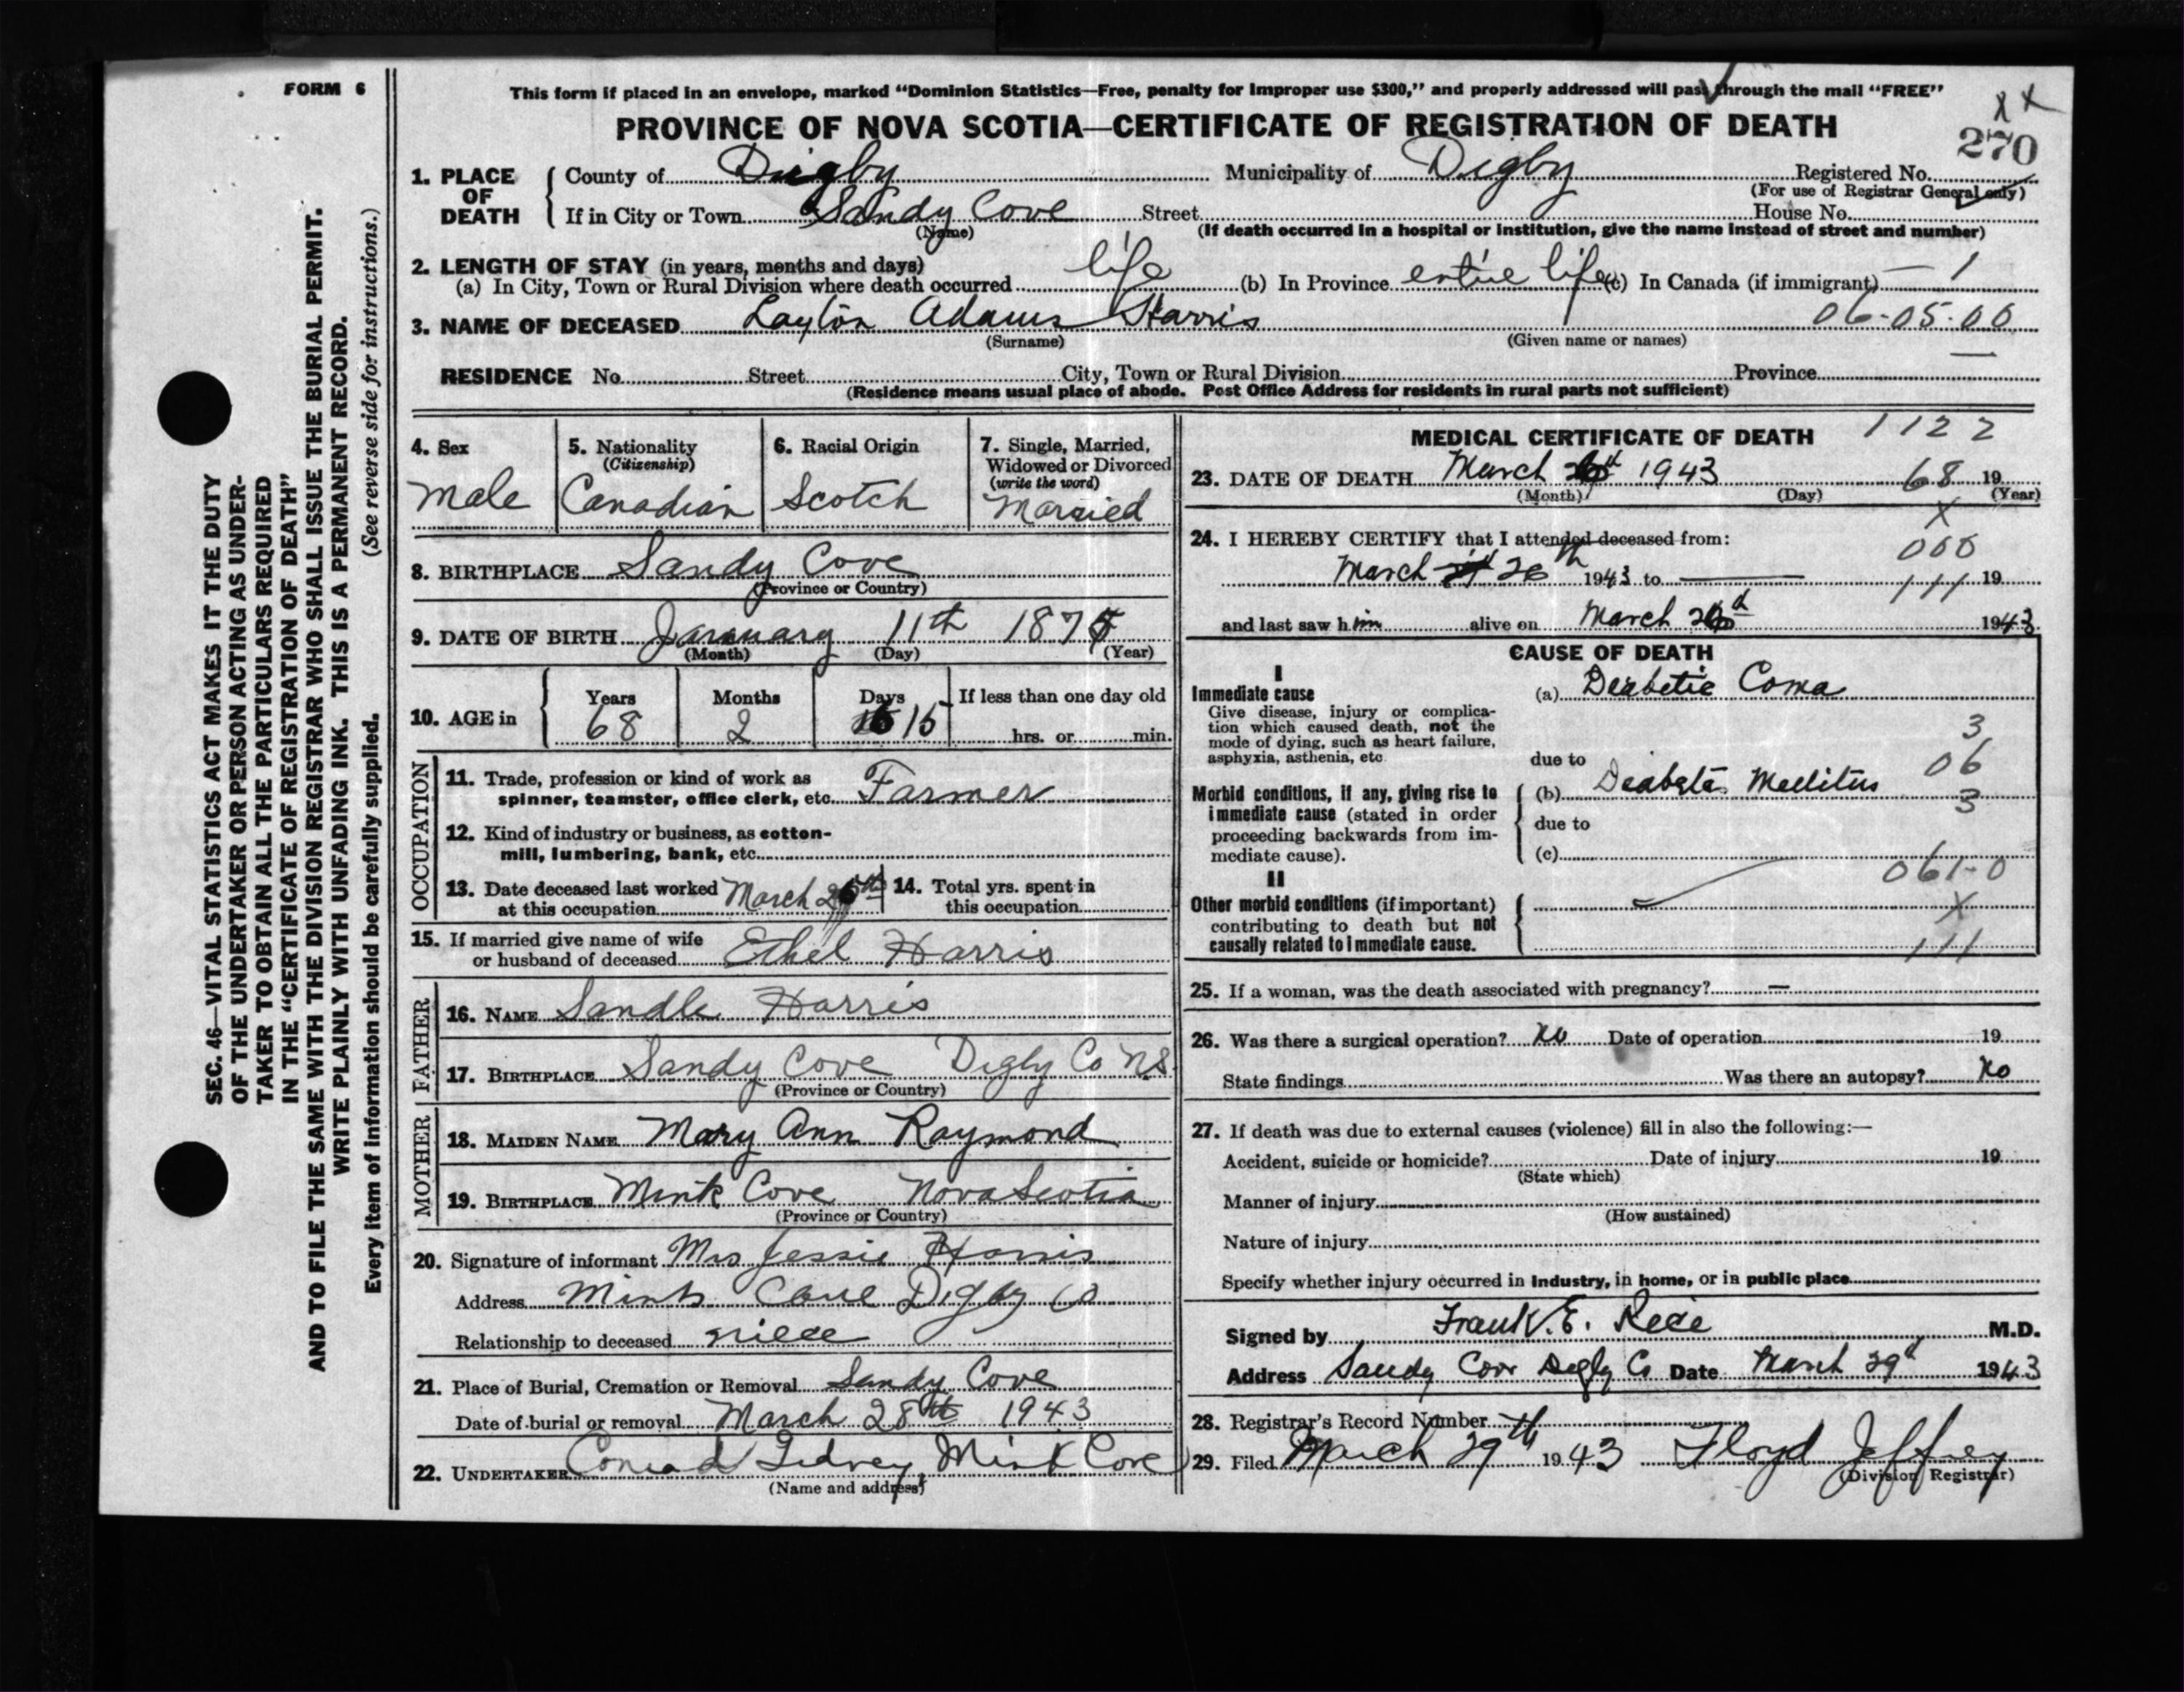 FORM 6
This form if placed in an envelope, marked “Dominion Statistics—Free, penalty for improper use $300,” and properly addressed will pass through the mail “FREE”
PROVINCE OF NOVA SCOTIA—CERTIFICATE OF REGISTRATION OF DEATH
270
1. PLACE OF DEATH
County of Digby Municipality of Digby Registered No.
(For use of Registrar General only)
If in City or Town Sandy Cove Street House No.
(Name) (If death occurred in a hospital or institution, give the name instead of street and number)
2. LENGTH OF STAY (in years, months and days)
(a) In City, Town or Rural Division where death occurred life (b) In Province entire life (c) In Canada (if immigrant) — 1
3. NAME OF DECEASED Layton Adams Harris 06-05-00
(Surname) (Given name or names)
RESIDENCE No. Street City, Town or Rural Division Province
(Residence means usual place of abode. Post Office Address for residents in rural parts not sufficient)
4. Sex
Male
5. Nationality
(Citizenship)
Canadian
6. Racial Origin
Scotch
7. Single, Married,
Widowed or Divorced
(write the word)
Married
8. BIRTHPLACE Sandy Cove
(Province or Country)
9. DATE OF BIRTH January 11th 187
(Month) (Day) (Year)
10. AGE in
Years Months Days If less than one day old
68 2 15 hrs. or min.
OCCUPATION
11. Trade, profession or kind of work as
spinner, teamster, office clerk, etc. Farmer
12. Kind of industry or business, as cotton-
mill, lumbering, bank, etc.
13. Date deceased last worked
at this occupation March 26th
14. Total yrs. spent in
this occupation
15. If married give name of wife
or husband of deceased Ethel Harris
FATHER
16. NAME Sandle Harris
17. BIRTHPLACE Sandy Cove Digby Co N.S.
(Province or Country)
MOTHER
18. MAIDEN NAME Mary Ann Raymond
19. BIRTHPLACE Mink Cove Nova Scotia
(Province or Country)
20. Signature of informant Mrs Jessie Harris
Address Mink Cove Digby Co
Relationship to deceased niece
21. Place of Burial, Cremation or Removal Sandy Cove
Date of burial or removal March 28th 1943
22. UNDERTAKER Conrad Gidney, Mink Cove
(Name and address)
MEDICAL CERTIFICATE OF DEATH 1122
23. DATE OF DEATH March 26th 1943 68 19
(Month) (Day) (Year)
24. I HEREBY CERTIFY that I attended deceased from:
000
March 26th 1943 to — 19
111
and last saw him alive on March 26 1943
CAUSE OF DEATH
I
Immediate cause
Give disease, injury or complica-
tion which caused death, not the
mode of dying, such as heart failure,
asphyxia, asthenia, etc.
(a) Diabetic Coma
3
due to
06
Morbid conditions, if any, giving rise to
immediate cause (stated in order
proceeding backwards from im-
mediate cause).
(b) Diabetes Mellitus
3
due to
(c)
061-0
II
Other morbid conditions (if important)
contributing to death but not
causally related to immediate cause.
X
111
25. If a woman, was the death associated with pregnancy? —
26. Was there a surgical operation? No Date of operation 19
State findings Was there an autopsy? No
27. If death was due to external causes (violence) fill in also the following:—
Accident, suicide or homicide? Date of injury 19
(State which)
Manner of injury
(How sustained)
Nature of injury
Specify whether injury occurred in industry, in home, or in public place
Signed by Frank E. Rice M.D.
Address Sandy Cove Digby Co Date March 29th 1943
28. Registrar's Record Number
29. Filed March 29th 1943 Floyd Jeffrey
(Division Registrar)
SEC. 46—VITAL STATISTICS ACT MAKES IT THE DUTY
OF THE UNDERTAKER OR PERSON ACTING AS UNDER-
TAKER TO OBTAIN ALL THE PARTICULARS REQUIRED
IN THE “CERTIFICATE OF REGISTRATION OF DEATH”
AND TO FILE THE SAME WITH THE DIVISION REGISTRAR WHO SHALL ISSUE THE BURIAL PERMIT.
WRITE PLAINLY WITH UNFADING INK. THIS IS A PERMANENT RECORD.
Every item of information should be carefully supplied. (See reverse side for instructions.)